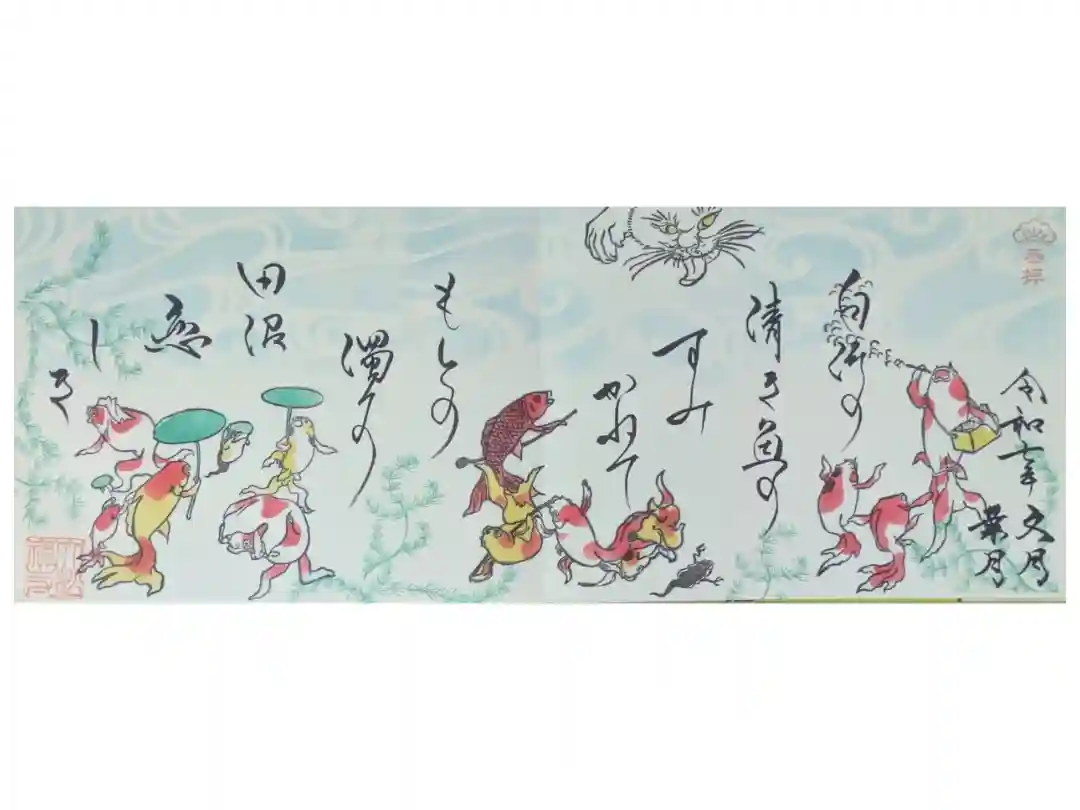 奉拝
令和七年 文月
葉月
白河の
清き魚の
すみ
かねて
もとの
濁りの
田沼
恋
し
き